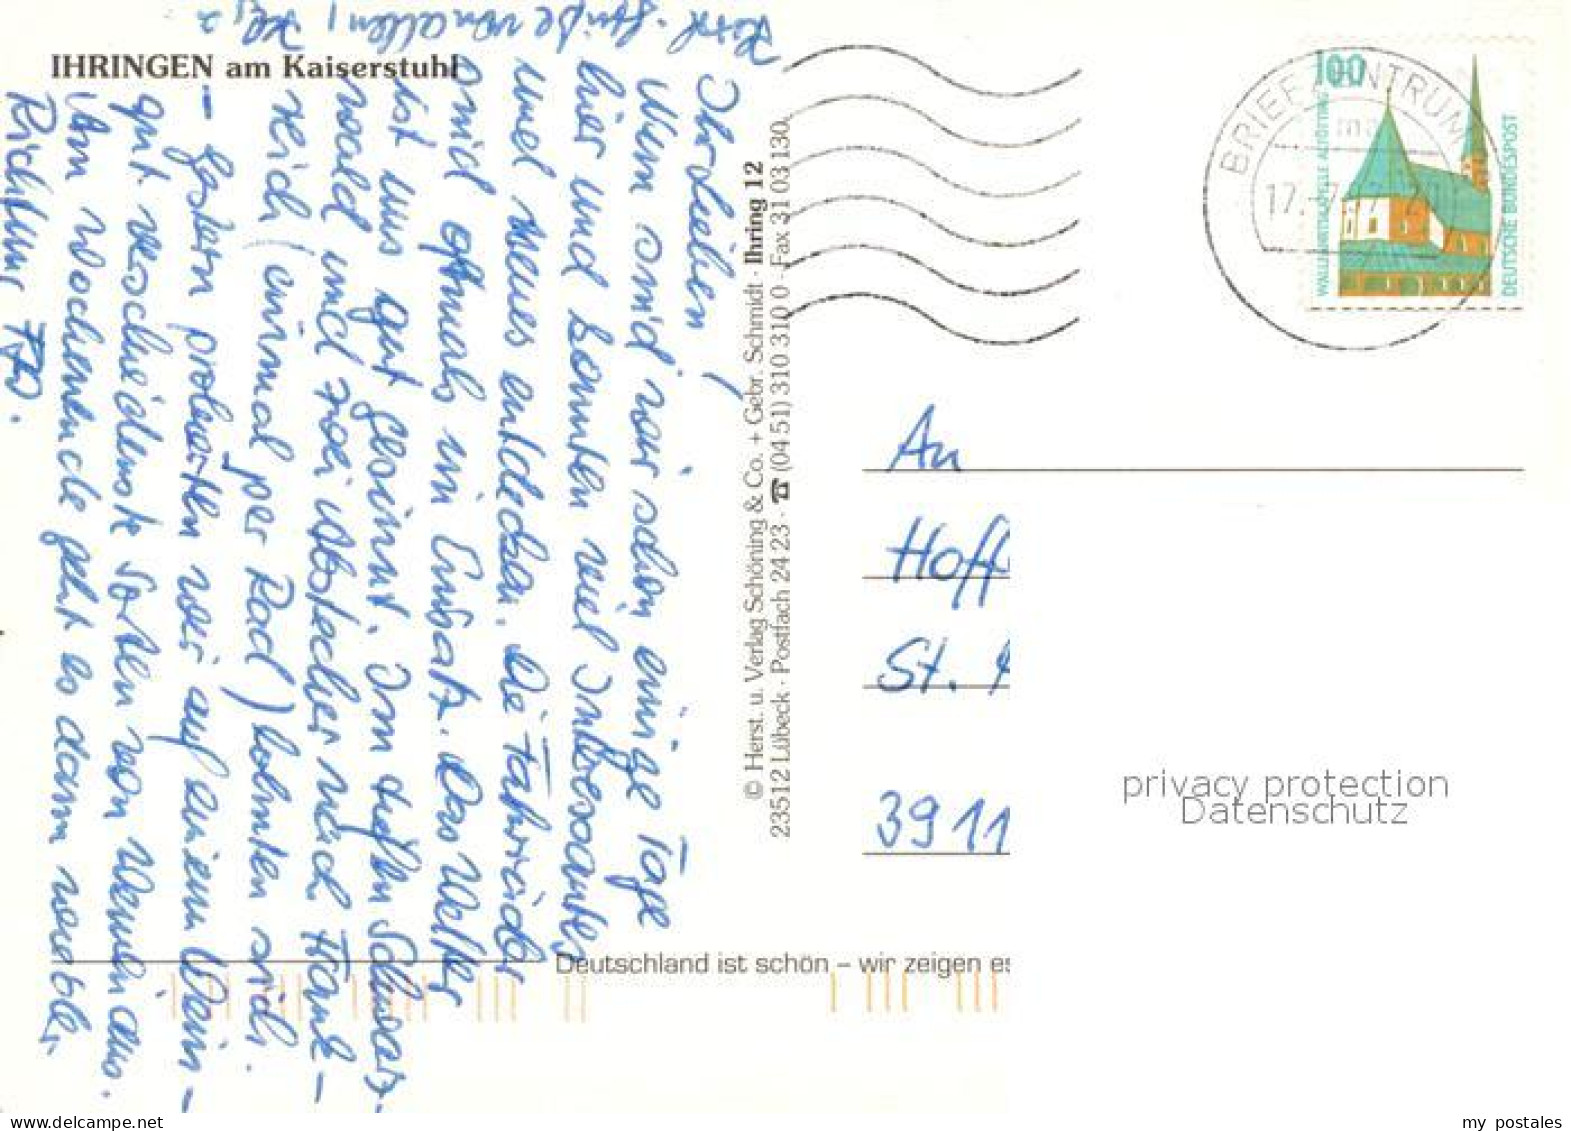 IHRINGEN am Kaiserstuhl
Ihr Lieben!
Nun sind wir schon einige Tage
hier und konnten viel Interessantes
und Neues entdecken. Die Fahrräder
sind oftmals im Einsatz. Das Wetter
ist uns gut gesinnt. Im tiefen Schwarz-
wald und zwei Abstecher nach Frank-
reich (einmal per Rad) lohnten sich.
- Gestern probierten wir auf einem Wein-
gut verschiedenste Sorten von Weinen aus.
Am Wochenende geht es dann wieder
Richtung
Herzl. Grüße von allen
© Herst. u. Verlag Schöning & Co. + Gebr. Schmidt · Ihring 12
23512 Lübeck · Postfach 24 23 · ☎ (04 51) 310 310 0 · Fax 31 03 130
BRIEFZENTRUM
17.
100
WALLFAHRTSKAPELLE ALTÖTTING
DEUTSCHE BUNDESPOST
An
Hoff
St.
3911
privacy protection
Datenschutz
Deutschland ist schön – wir zeigen es
my_postales